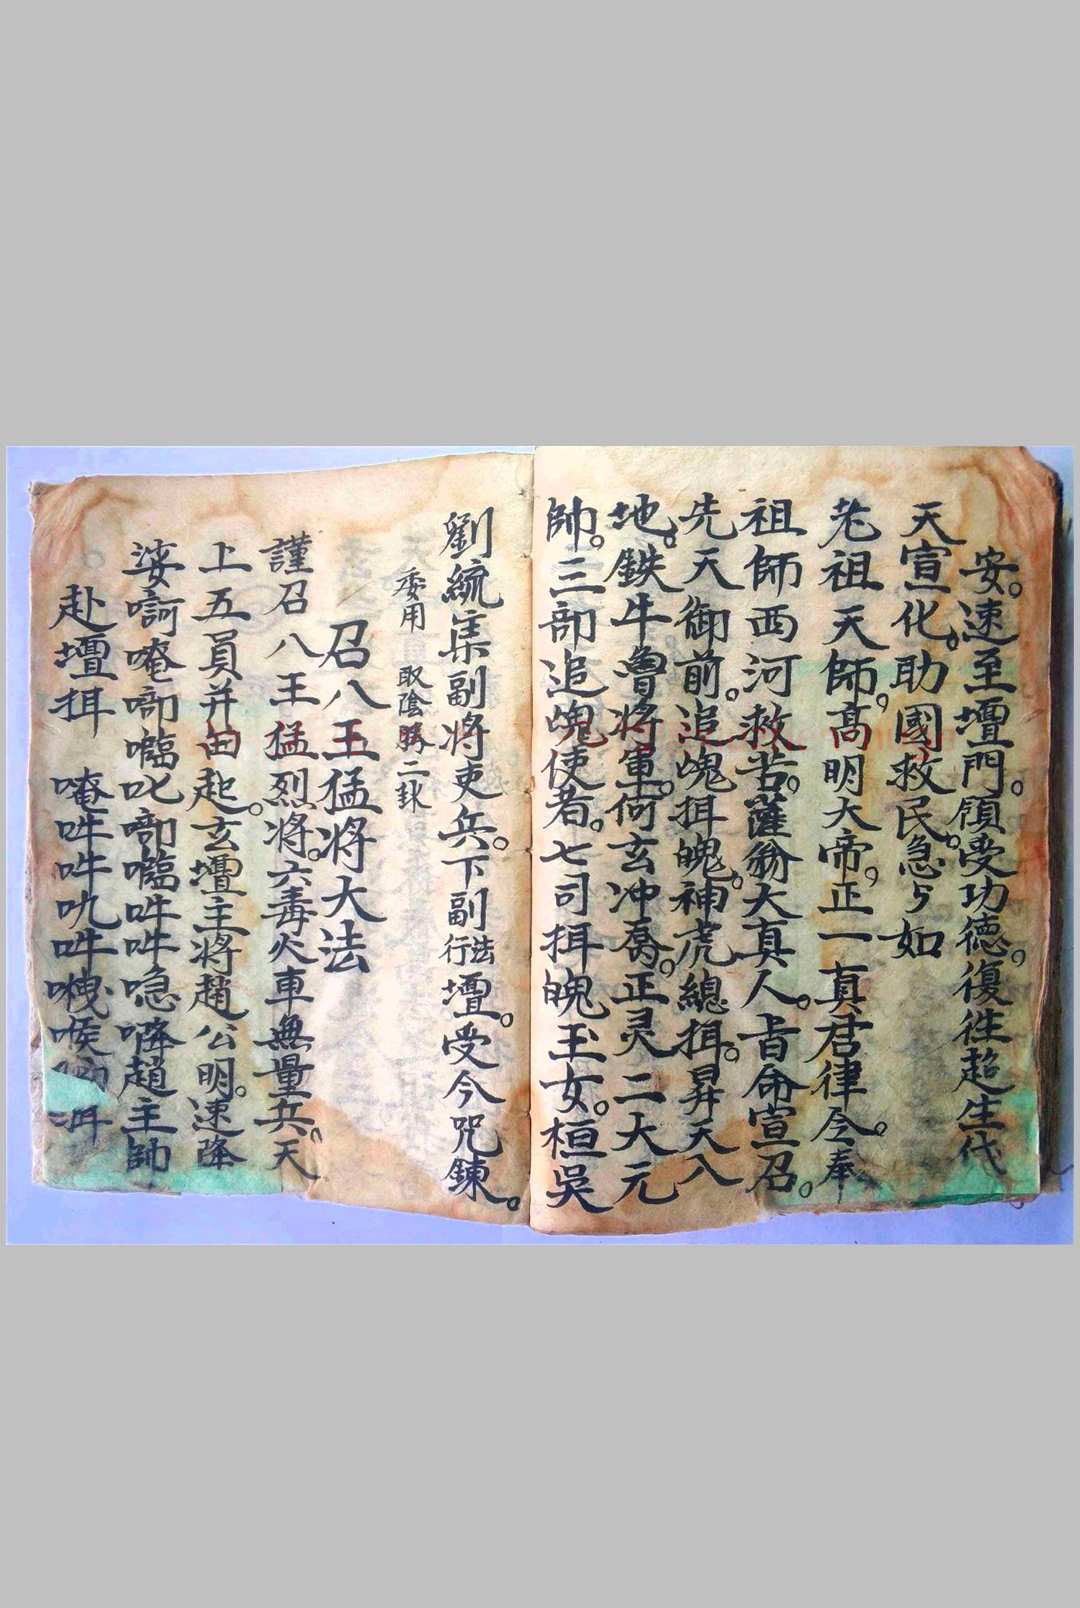 安。速至壇門。領受功德。復徃超生代
天宣化。助國救民。急々如
老祖天師。高明大帝。正一真君律令。奉
祖師西河救苦。薩翁大真人。㫖命宣召。
先天御前。追魂拝魄。神虎總拝。昇天入
地。鉄牛魯將軍。何玄冲喬。正灵二大元
帥。三部追魂使者。七司拝魄玉女。桓吳
劉統集副將吏兵。下副法行壇。受今咒鍊。
委用 取陰勝二
召八王猛將大法
謹召八王猛烈將。六毒火車無量兵。天
上五員并由起。玄壇主將趙公明。速降
婆啊唵㗭㘕叱㗭㘕吽吽急降趙主帥
赴壇 唵吽吽吽㗨喉